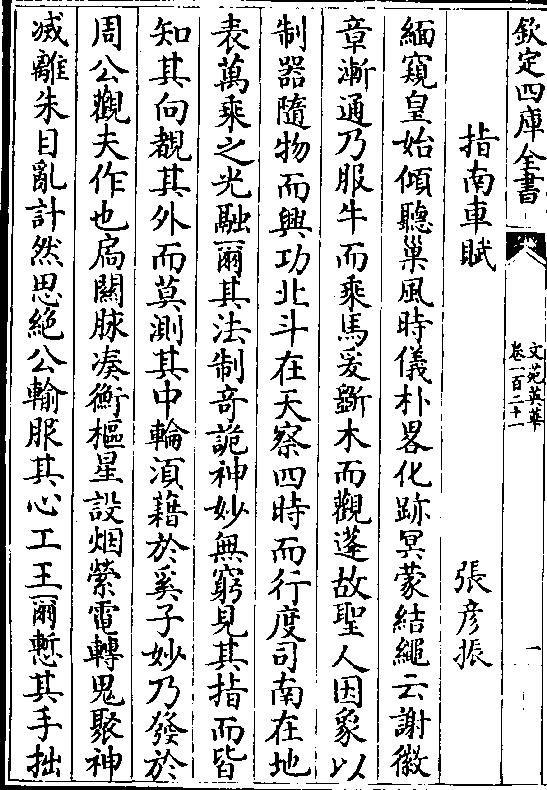 欽定四庫全書
文苑英華
卷一百二十一
一
指南車賦　張彦振
緬窺皇始傾聽巢風時儀朴畧化跡冥蒙結繩云謝徽
章漸通乃服牛而乘馬爰斵木而觀蓬故聖人因象以
制器隨物而興功北斗在天察四時而行度司南在地
表萬乘之光融爾其法制竒詭神妙無窮見其指而皆
知其向覩其外而莫測其中輪湏藉於奚子妙乃發於
周公觀夫作也扄闗脉凑衡樞星設烟縈電轉鬼聚神
滅離朱目亂計然思絶公輸服其心工王爾慙其手拙